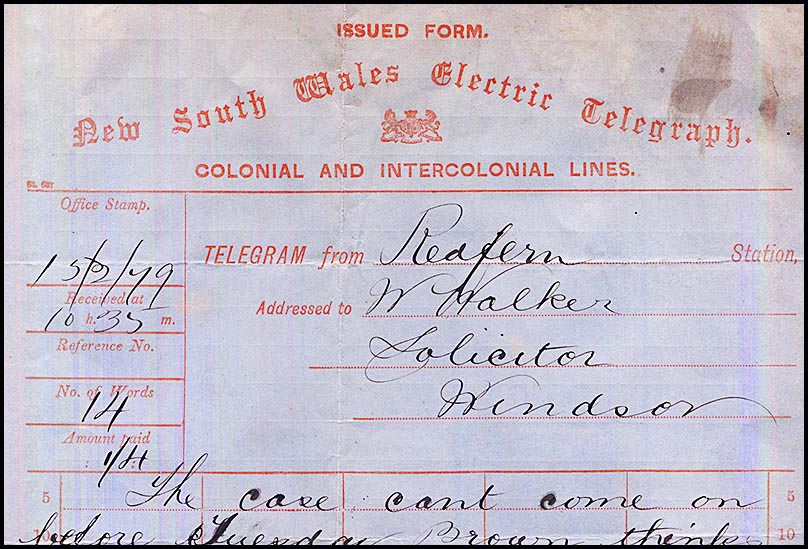 ISSUED FORM.
New South Wales Electric Telegraph.
COLONIAL AND INTERCOLONIAL LINES.
Office Stamp.
15/2/79
TELEGRAM from Redfern Station,
Received at
10 h. 35 m.
Addressed to W Walker
Reference No.
Solicitor
No. of Words
14
Windsor
Amount paid
: 1/4 :
5 The case cant come on 5
10 before Tuesday Brown thinks 10